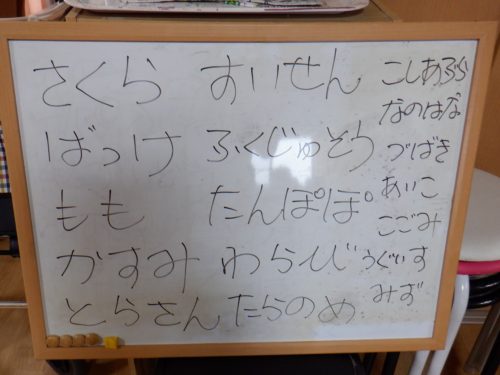 さくら すいせん こしあぶら
なのはな
ばっけ ふくじゅそう つばき
もも たんぽぽ あいこ
こごみ
かすみ わらび うぐいす
とらさん たらのめ みず